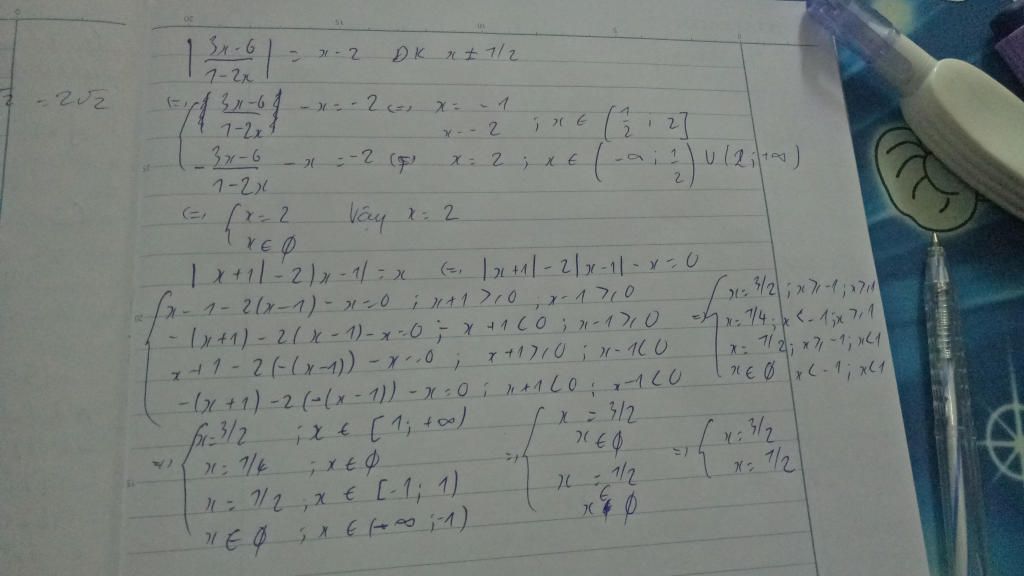 = 2√2
|3x-6 / 1-2x| = x-2 ĐK x ± 1/2
(=) {|3x-6 / 1-2x| - x = -2 (=) x = -1
x = -2 ; x ∈ [1/2 ; 2]
-3x-6 / 1-2x - x = -2 (=) x = 2 ; x ∈ (-∞ ; 1/2) ∪ (2 ; +∞)
(=) { x = 2 Vậy x = 2
x ∈ ∅
|x+1| - 2|x-1| = x (=) |x+1| - 2|x-1| - x = 0
{ x - 1 - 2(x-1) - x = 0 ; x+1 ≥ 0 ; x-1 ≥ 0
-(x+1) - 2(x-1) - x = 0 ; x+1 < 0 ; x-1 ≥ 0
x+1 - 2(-(x-1)) - x = 0 ; x+1 ≥ 0 ; x-1 < 0
-(x+1) - 2(-(x-1)) - x = 0 ; x+1 < 0 ; x-1 < 0
=) { x = 3/2 ; x ≥ -1 ; x ≥ 1
x = 1/4 ; x < -1 ; x ≥ 1
x = 1/2 ; x ≥ -1 ; x < 1
x ∈ ∅ x < -1 ; x < 1
=) { x = 3/2 ; x ∈ [1 ; +∞)
x = 1/4 ; x ∈ ∅
x = 1/2 ; x ∈ [-1 ; 1)
x ∈ ∅ ; x ∈ (-∞ ; -1)
=) { x = 3/2
x ∈ ∅
x = 1/2
x ∈ ∅
=) { x = 3/2
x = 1/2